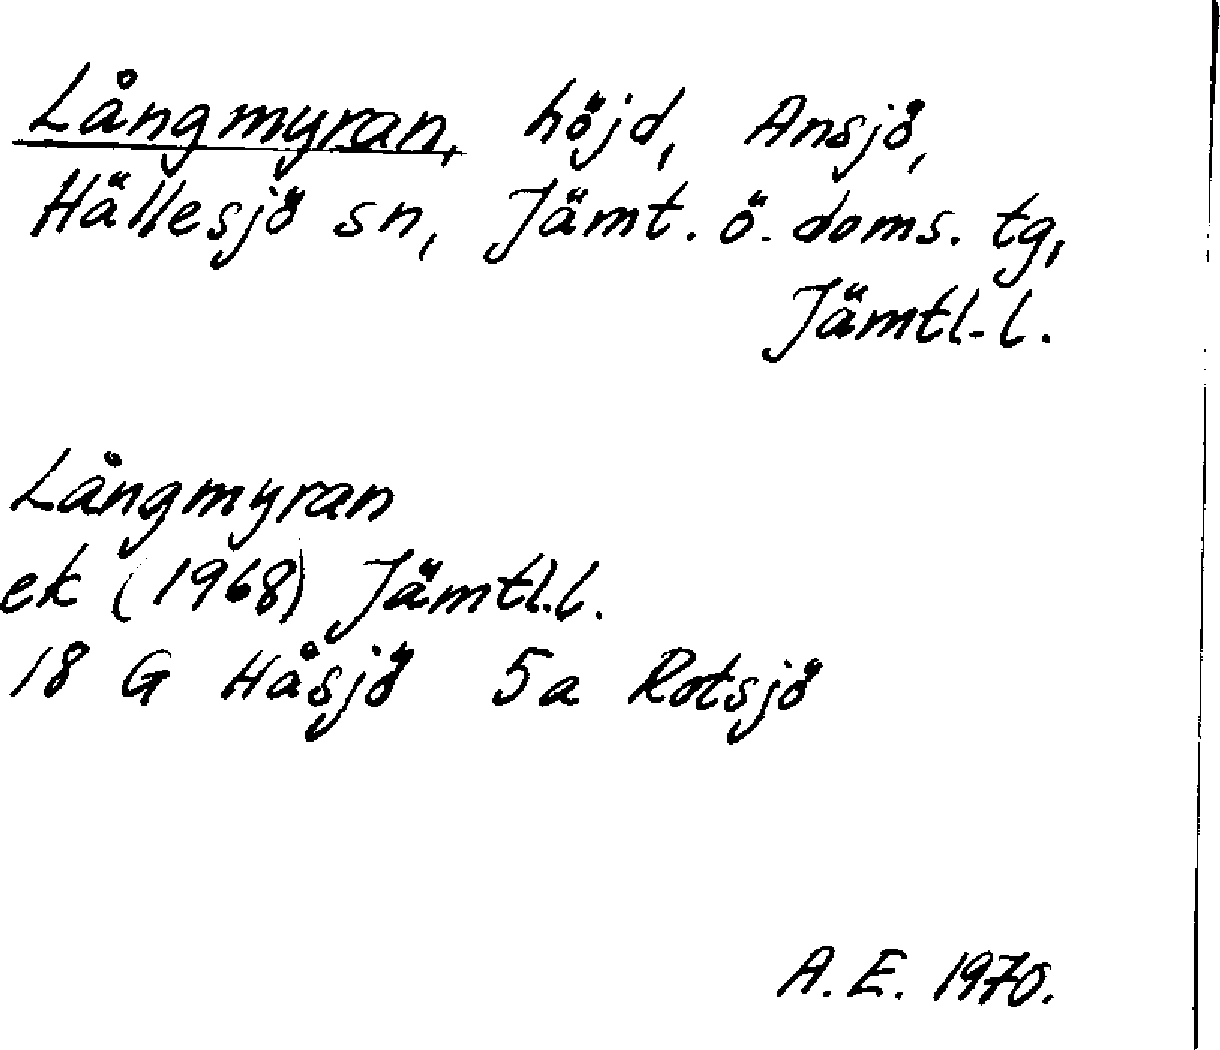 Långmyran, höjd, Ansjö,
Hällesjö sn, Jämt. ö. doms. tg,
Jämtl-l.
Långmyran
ek (1968) Jämtl.l.
18 G Håsjö 5a Rotsjö
A. E. 1970.